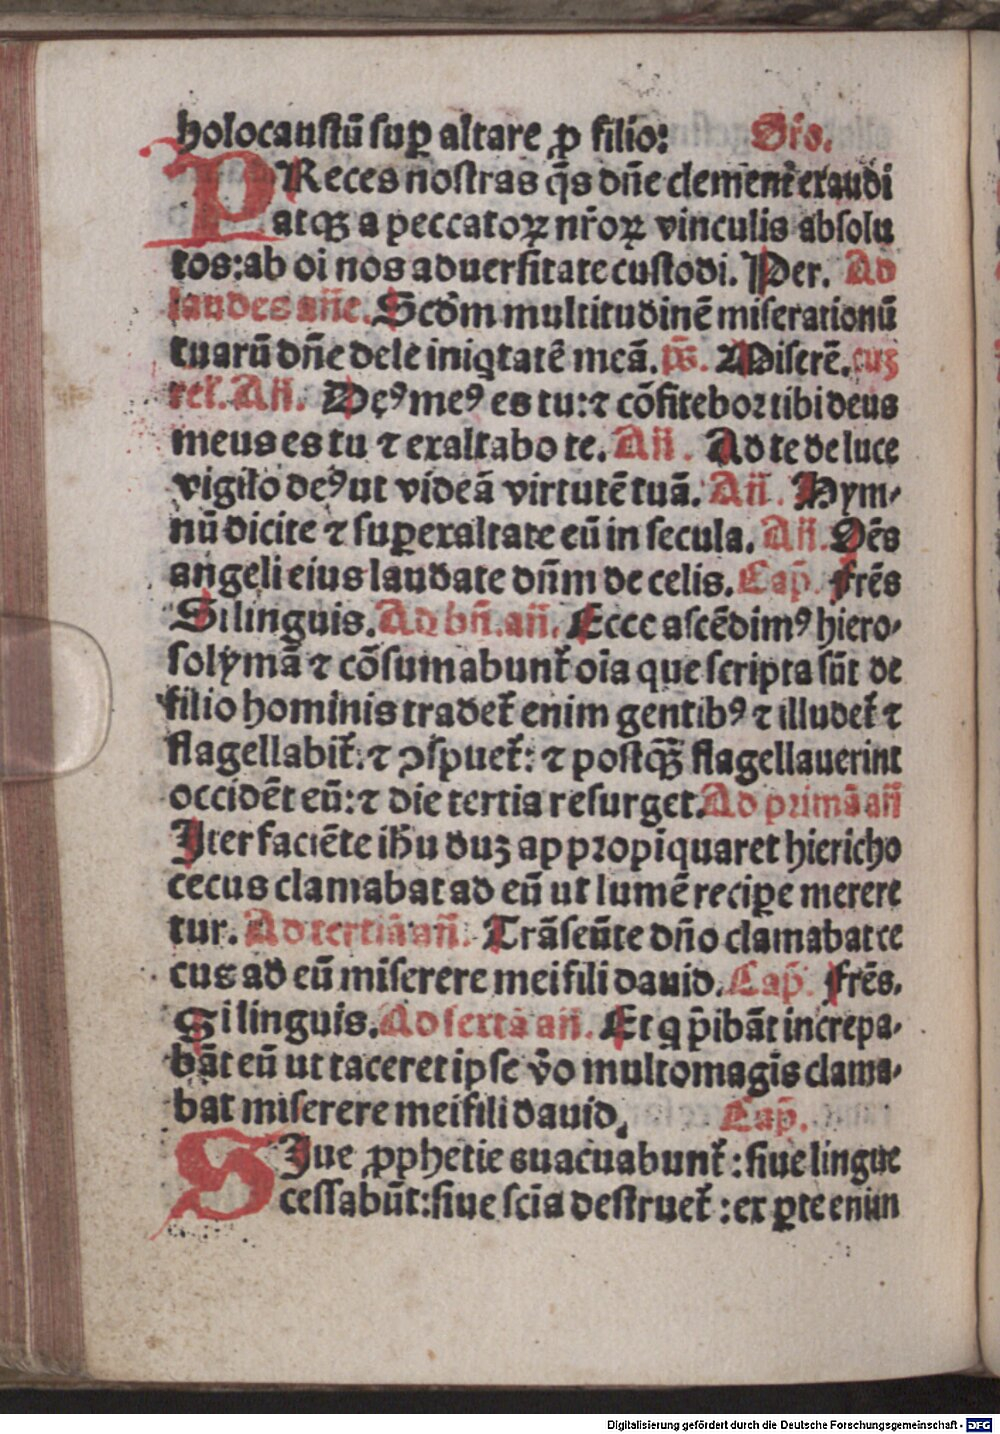 holocaustū suꝑ altare ꝓ filio: Orō.
PReces nostras q̄s dn̄e clemēter exaudi
atqꝫ a peccatoꝝ nr̄oꝝ vinculis absolu
tos: ab oī nos aduersitate custodi. Per. Ad
laudes añe. Scd̄m multitudinē miserationū
tuarū dn̄e dele iniq̇tatē meā. ps̄. Miserē. cuꝫ
rel̄. Añ. Deꝰ meꝰ es tu: ⁊ cōfiteboꝛ tibi deus
meus es tu ⁊ exaltabo te. Añ. Ad te de luce
vigilo deꝰ ut videā virtutē tuā. Añ. Hym-
nū dicite ⁊ suꝑexaltate eū in secula. Añ. Oēs
angeli eius laudate dn̄m de celis. Cap̄. Frēs
Si linguis. Ad bn̄. añ. Ecce ascēdimꝰ hiero-
solymā ⁊ cōsumabunt᷑ oīa que scripta sūt de
filio hominis tradet᷑ enim gentibꝰ ⁊ illudet᷑ ⁊
flagellabit᷑: ⁊ ꝯspuet᷑: ⁊ postqꝫ̄ flagellauerint
occidēt eū: ⁊ die tertia resurget. Ad primā añ
Iter faciēte ih̄u duꝫ appꝛopīquaret hiericho
cecus clamabat ad eū ut lumē reciꝑe merere
tur. Ad tertiā añ. Trāseūte dn̄o clamabat ce
cus ad eū miserere mei fili dauid. Cap̄. Frēs.
Si linguis. Ad sextā añ. Et q̇ p̄ibāt increpa-
bāt eū ut taceret ipse v̄o multomagīs clama-
bat miserere mei fili dauid. Cap̄.
SIue ꝓphetie euacuabunt᷑: siue lingue
cessabūt: siue scīa destruet᷑: ex ꝑte enim
Digitalisierung gefördert durch die Deutsche Forschungsgemeinschaft - DFG